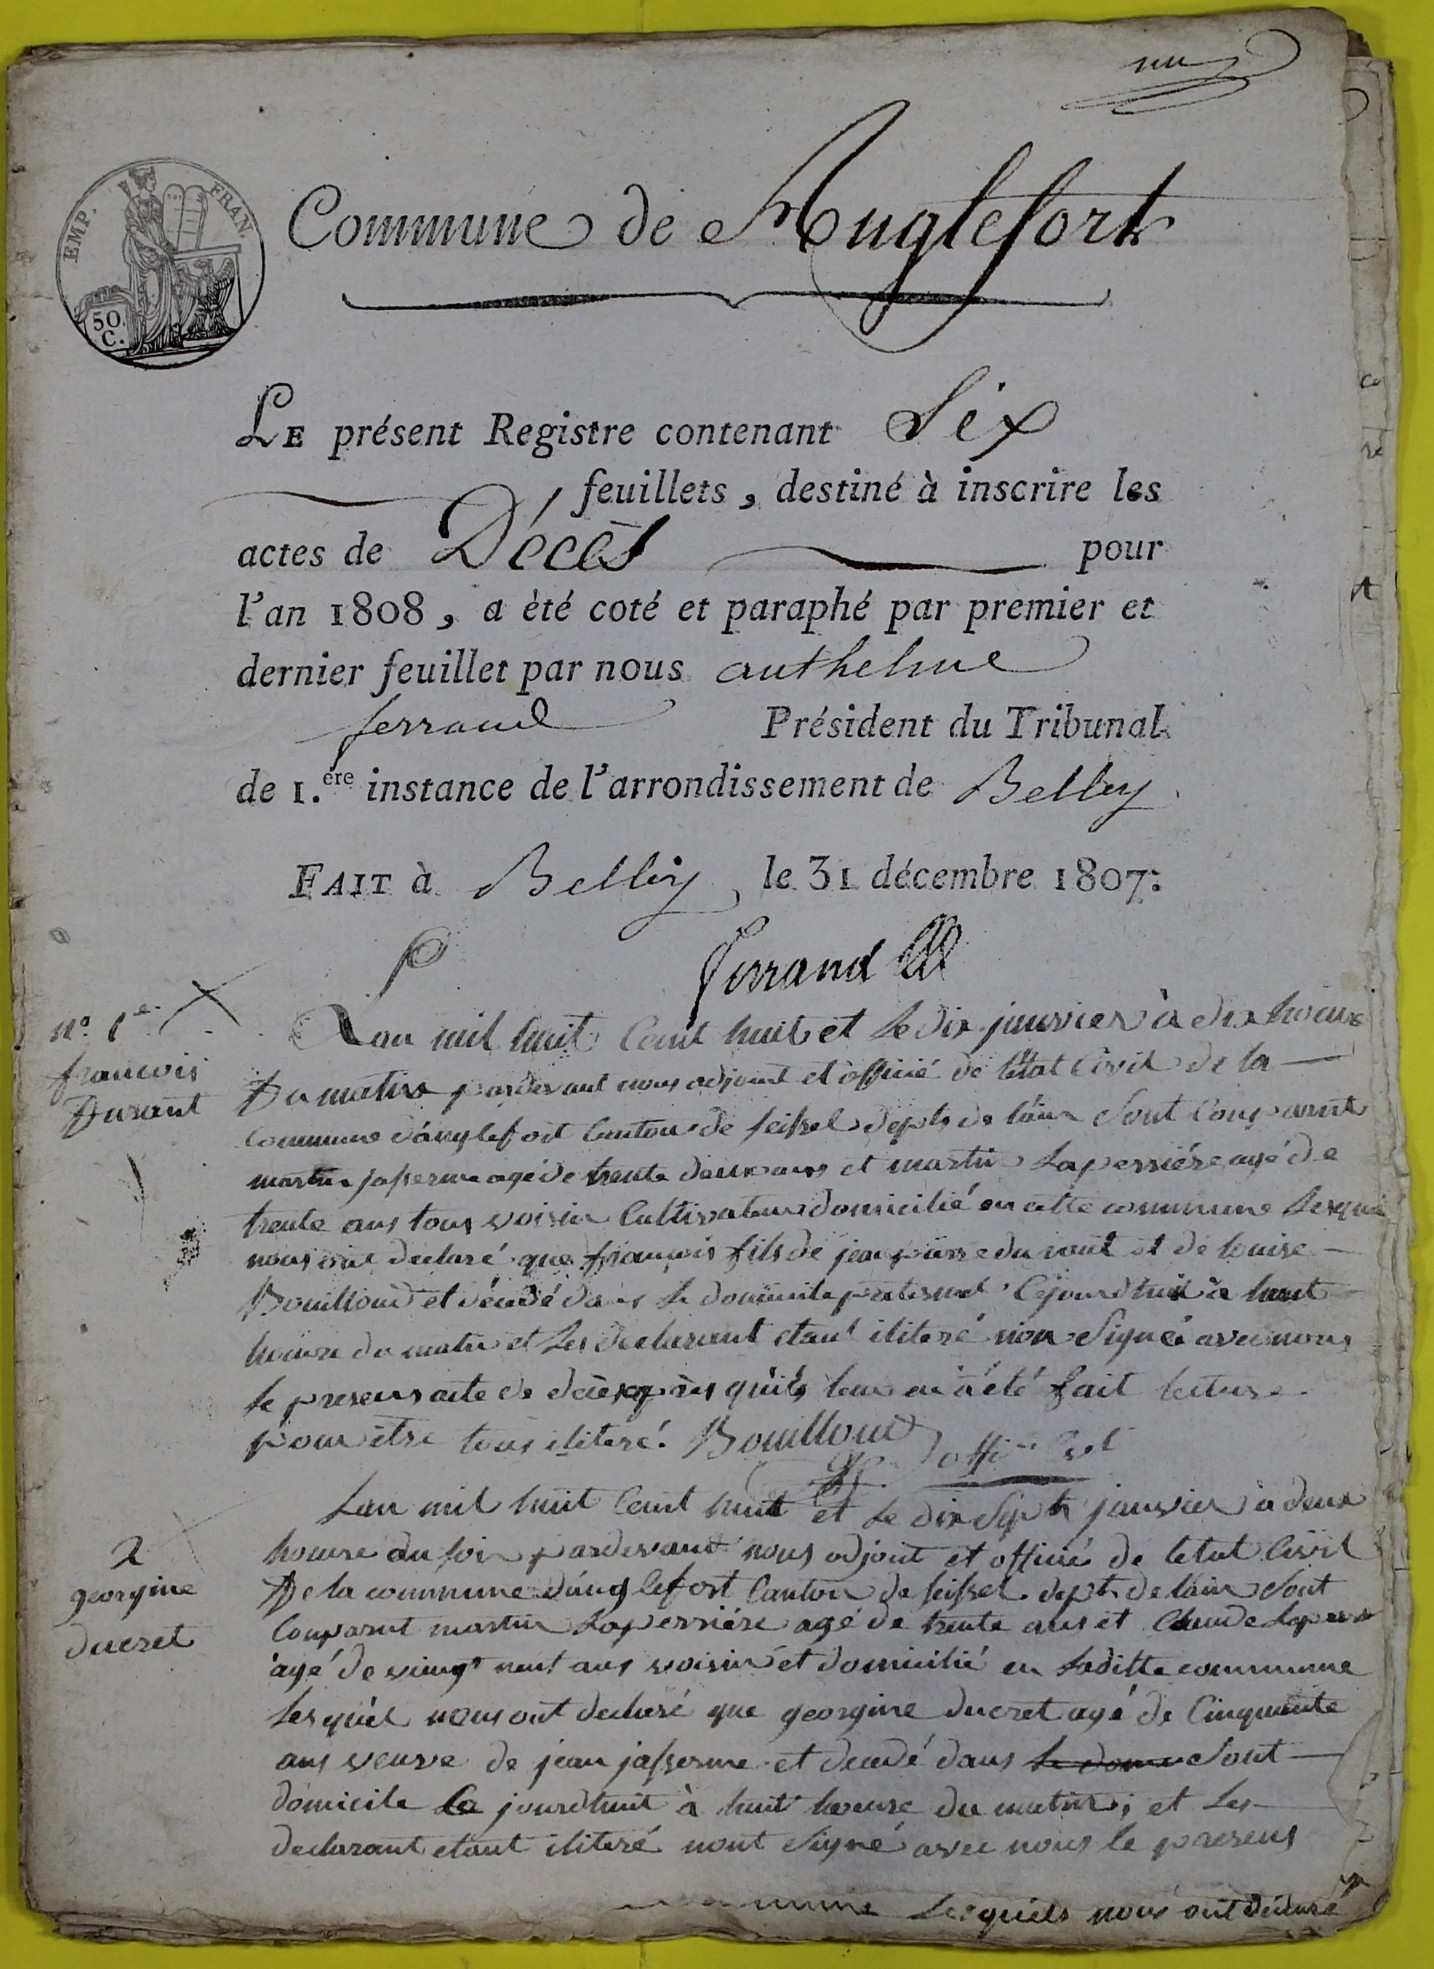 EMP. FRAN.
50 C.
Commune de Anglefort
LE présent Registre contenant Six
feuillets, destiné à inscrire les
actes de Décès pour
l'an 1808, a èté coté et paraphé par premier et
dernier feuillet par nous anthelme
ferrand Président du Tribunal
de 1.ère instance de l'arrondissement de Belley
FAIT à Belley, le 31 décembre 1807.
ferrand
nº 1er
francois
Durant
Lan mil huit Cent huit et le dix janvier à dix heure
Du matin pardevant nous adjoint et officié de létat Civil de la
commune d'anglefort Canton de seissel depts de láin Sont Comparut
martin jasserme agé de trente deux ans et martin Laperriére agé de
trente ans tous voisin Cultivateur domicilié en cette commune Lesquel
nous ont declaré que françois fils de jean pierre du rant et de louise
Bouilloud et décedé dans le domicile paternel Cejourdhui à huit
heure du matin et Les declarant etant ilitéré non Signé avec nous
le presens acte de décès après quils leur en à été fait lecture
pour être tous ilitere. Bouilloud
offi
2
georgine
ducret
Lan mil huit Cent huit et le dix Sept janvier à deux
heure du soir pardevant nous adjoint et officié de letat Civil
De la commune d'anglefort Canton de seissel dept de lain Sont
Comparut martin Laperriére agé de trente ans et Claude Laperr
agé de vingt neuf ans voisin et domicilié en Laditte commune
Lesquel nous ont declaré que georgine ducret agé de Cinquante
ans veuve de jean jasserme et decedé dans le dome Sont
domicile Ce jourdhuit à huit heure du matin; et Les
declarant etant ilitéré nont Signé avec nous le presens
Lesquels nous ont déclaré